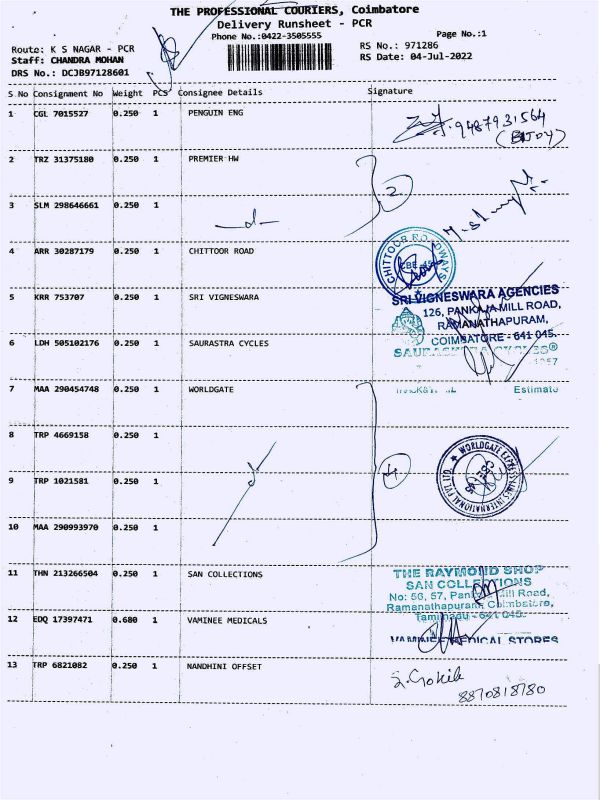 THE PROFESSIONAL COURIERS, Coimbatore
Delivery Runsheet - PCR
Phone No.:0422-3505555
Page No.:1
Route: K S NAGAR - PCR
RS No.: 971286
Staff: CHANDRA MOHAN
RS Date: 04-Jul-2022
DRS No.: DCJB97128601
S No Consignment No Weight PCS Consignee Details Signature
1 CGL 7015527 0.250 1 PENGUIN ENG
9487931564
(BIJOY)
2 TRZ 31375180 0.250 1 PREMIER HW
2
3 SLM 298646661 0.250 1
-d-
4 ARR 30287179 0.250 1 CHITTOOR ROAD
CHITTOOR ROADWAYS
5 KRR 753707 0.250 1 SRI VIGNESWARA
SRI VIGNESWARA AGENCIES
126, PANKAJA MILL ROAD,
RAMANATHAPURAM,
COIMBATORE - 641 045.
6 LDH 505102176 0.250 1 SAURASTRA CYCLES
SAURASTRA CYCLES®
7 MAA 290454748 0.250 1 WORLDGATE
Estimate
8 TRP 4669158 0.250 1
WORLDGATE EXPRESS LINES INTERNATIONAL PVT. LTD.
9 TRP 1021581 0.250 1
4
10 MAA 290993970 0.250 1
11 THN 213266504 0.250 1 SAN COLLECTIONS
THE RAYMOND SHOP
SAN COLLECTIONS
No: 56, 57, Pankaja Mill Road,
Ramanathapuram, Coimbatore,
Tamilnadu - 641 045.
12 EDQ 17397471 0.680 1 VAMINEE MEDICALS
VAMINEE MEDICAL STORES
13 TRP 6821082 0.250 1 NANDHINI OFFSET
S. Gokila
8870818780